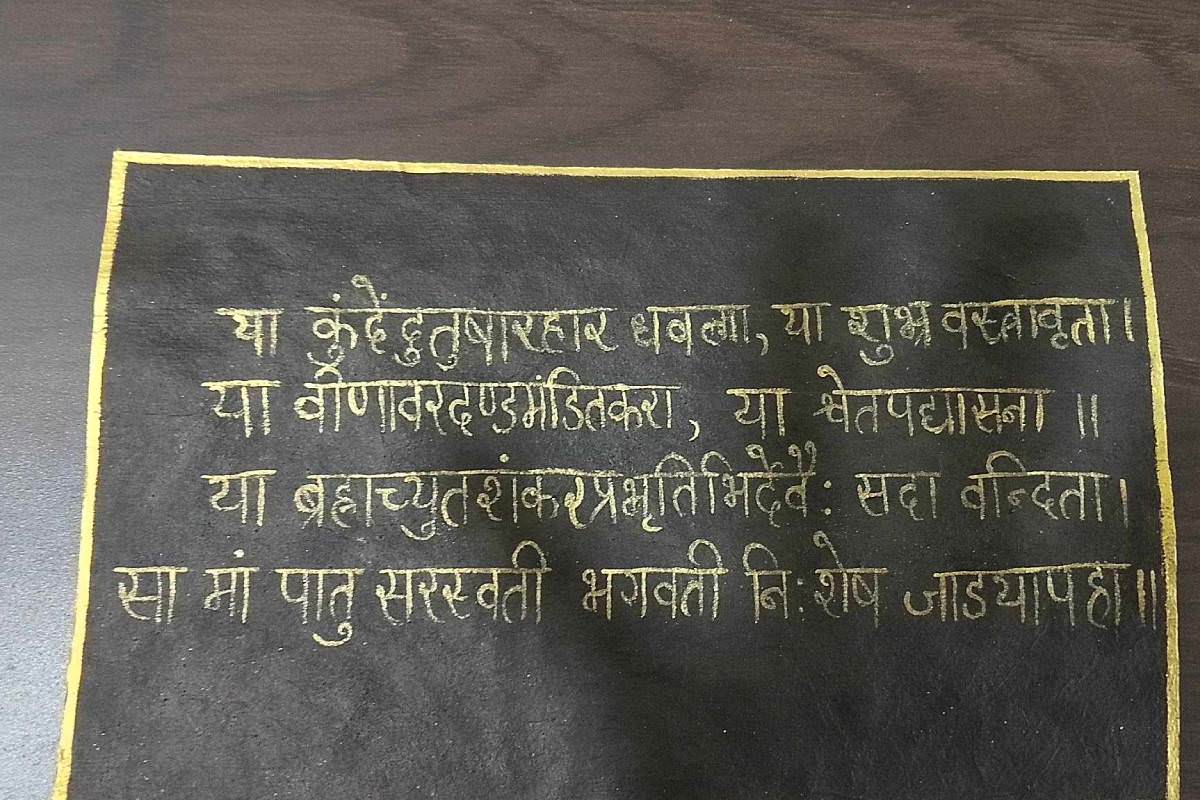 या कुंदेंदुतुषारहार धबला, या शुभ्र वस्त्रावृता।
या वीणावरदण्डमंडितकरा, या श्वेतपद्मासना ॥
या ब्रह्माच्युतशंकरप्रभृतिभिर्देवैः सदा वन्दिता।
सा मां पातु सरस्वती भगवती निःशेष जाडयापहा॥